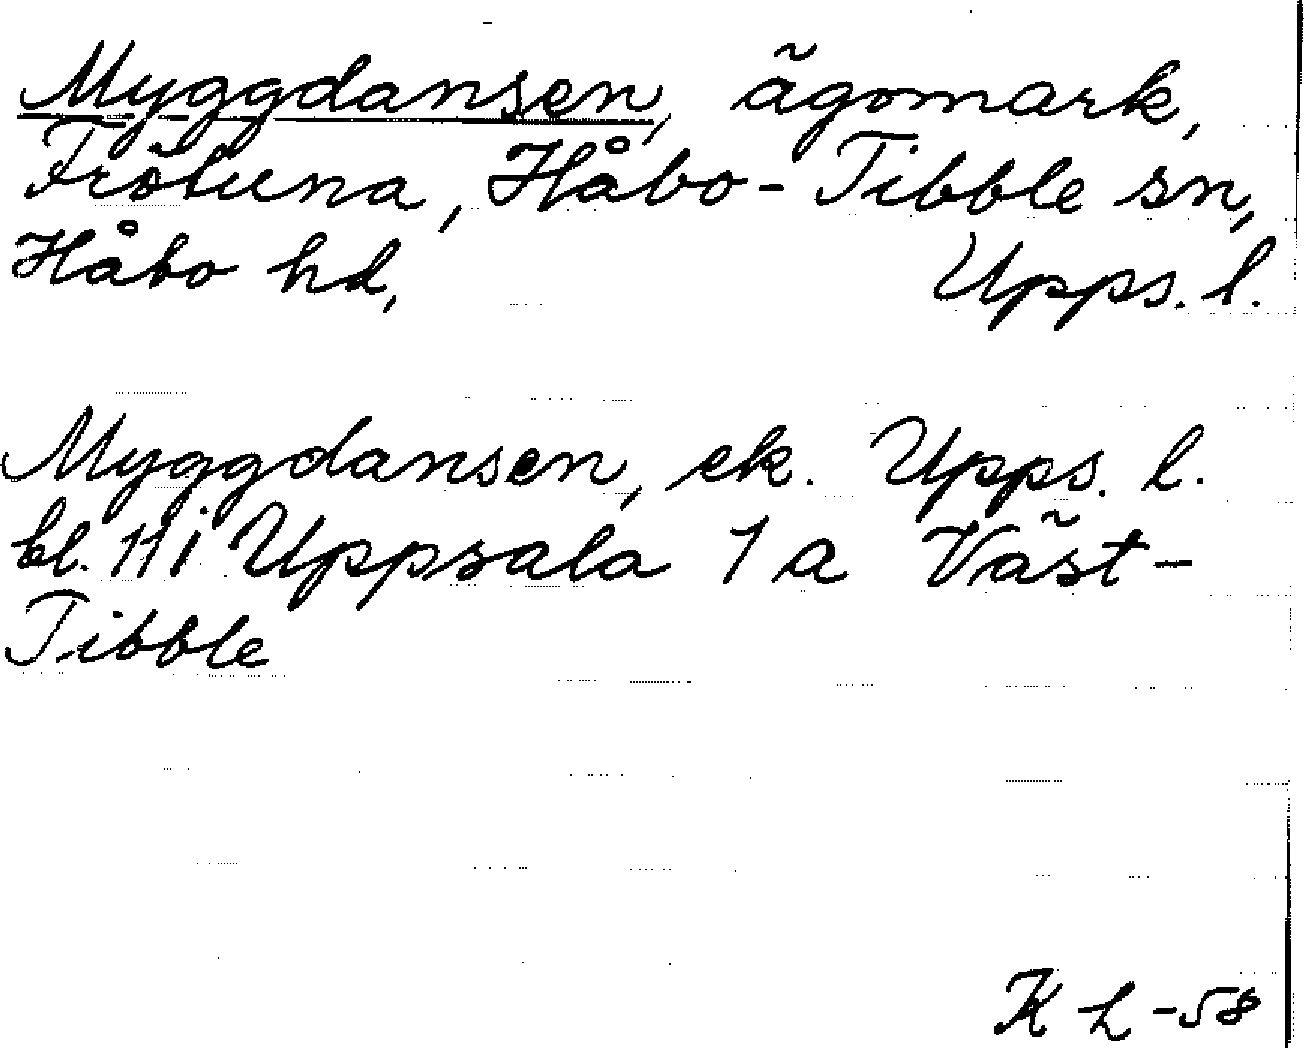 Myggdansen, ägomark,
Frötuna, Håbo-Tibble sn,
Håbo hd, Upps. l.
Myggdansen, ek. Upps. l.
bl. 11 i Uppsala 1 a Väst-
Tibble
K L -58